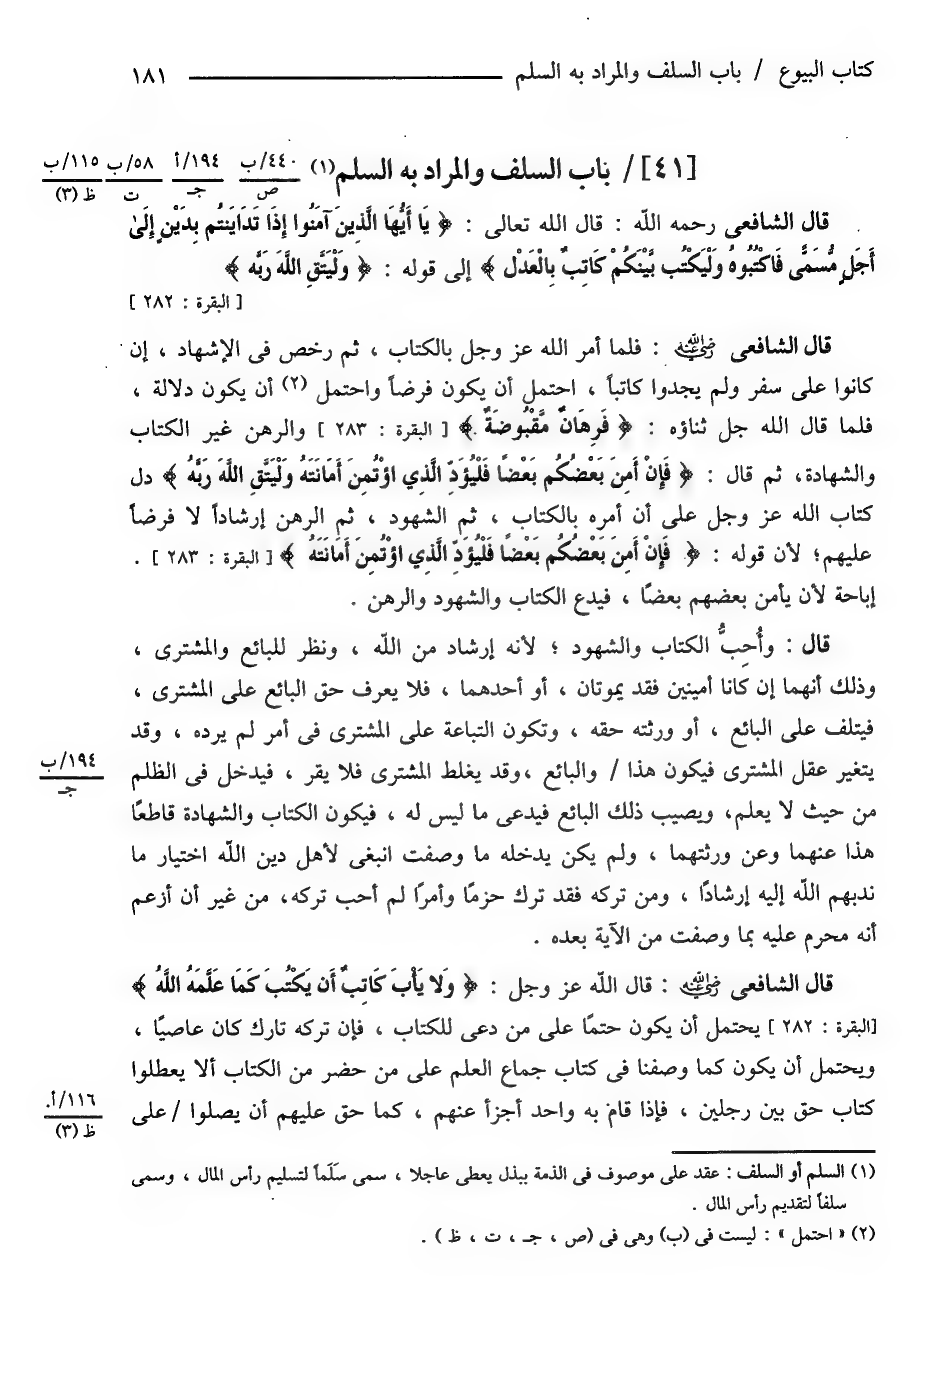 كتاب البيوع / باب السلف والمراد به السلم ١٨١
[٤١] / باب السلف والمراد به السلم(١)
٤٤٠/ب ص
١٩٤/أ جـ
٥٨/ب ت
١١٥/ب ظ (٣)
قال الشافعى رحمه اللّه : قال الله تعالى : ﴿ يَا أَيُّهَا الَّذِينَ آمَنُوا إِذَا تَدَايَنتُم بِدَيْنٍ إِلَىٰ
أَجَلٍ مُّسَمًّى فَاكْتُبُوهُ وَلْيَكْتُب بَّيْنَكُمْ كَاتِبٌ بِالْعَدْلِ ﴾ إلى قوله : ﴿ وَلْيَتَّقِ اللَّهَ رَبَّهُ ﴾
[ البقرة : ٢٨٢ ]
قال الشافعى رَضِيَ اللهُ عَنْهُ : فلما أمر الله عز وجل بالكتاب ، ثم رخص فى الإشهاد ، إن
كانوا على سفر ولم يجدوا كاتباً ، احتمل أن يكون فرضاً واحتمل (٢) أن يكون دلالة ،
فلما قال الله جل ثناؤه : ﴿ فَرِهَانٌ مَّقْبُوضَةٌ ﴾ [ البقرة : ٢٨٣ ] والرهن غير الكتاب
والشهادة، ثم قال : ﴿ فَإِنْ أَمِنَ بَعْضُكُم بَعْضًا فَلْيُؤَدِّ الَّذِي اؤْتُمِنَ أَمَانَتَهُ وَلْيَتَّقِ اللَّهَ رَبَّهُ ﴾ دل
كتاب الله عز وجل على أن أمره بالكتاب ، ثم الشهود ، ثم الرهن إرشاداً لا فرضاً
عليهم؛ لأن قوله : ﴿ فَإِنْ أَمِنَ بَعْضُكُم بَعْضًا فَلْيُؤَدِّ الَّذِي اؤْتُمِنَ أَمَانَتَهُ ﴾ [ البقرة : ٢٨٣ ] .
إباحة لأن يأمن بعضهم بعضًا ، فيدع الكتاب والشهود والرهن .
قال : وأُحِبُّ الكتاب والشهود ؛ لأنه إرشاد من اللّه ، ونظر للبائع والمشترى ،
وذلك أنهما إن كانا أمينين فقد يموتان ، أو أحدهما ، فلا يعرف حق البائع على المشترى ،
فيتلف على البائع ، أو ورثته حقه ، وتكون التباعة على المشترى فى أمر لم يرده ، وقد
يتغير عقل المشترى فيكون هذا / والبائع ،وقد يغلط المشترى فلا يقر ، فيدخل فى الظلم
١٩٤/ب جـ
من حيث لا يعلم، ويصيب ذلك البائع فيدعى ما ليس له ، فيكون الكتاب والشهادة قاطعًا
هذا عنهما وعن ورثتهما ، ولم يكن يدخله ما وصفت انبغى لأهل دين اللّه اختيار ما
ندبهم اللّه إليه إرشادًا ، ومن تركه فقد ترك حزمًا وأمرًا لم أحب تركه، من غير أن أزعم
أنه محرم عليه بما وصفت من الآية بعده .
قال الشافعى رَضِيَ اللهُ عَنْهُ : قال اللّه عز وجل : ﴿ وَلا يَأْبَ كَاتِبٌ أَن يَكْتُبَ كَمَا عَلَّمَهُ اللَّهُ ﴾
[البقرة : ٢٨٢ ] يحتمل أن يكون حتمًا على من دعى للكتاب ، فإن تركه تارك كان عاصيًا ،
ويحتمل أن يكون كما وصفنا فى كتاب جماع العلم على من حضر من الكتاب ألا يعطلوا
كتاب حق بين رجلين ، فإذا قام به واحد أجزأ عنهم ، كما حق عليهم أن يصلوا / على
١١٦/أ. ظ (٣)
(١) السلم أو السلف : عقد على موصوف فى الذمة ببذل يعطى عاجلا ، سمى سَلَماً لتسليم رأس المال ، وسمى
سلفاً لتقديم رأس المال .
(٢) « احتمل » : ليست فى (ب) وهى فى (ص ، جـ ، ت ، ظ ) .